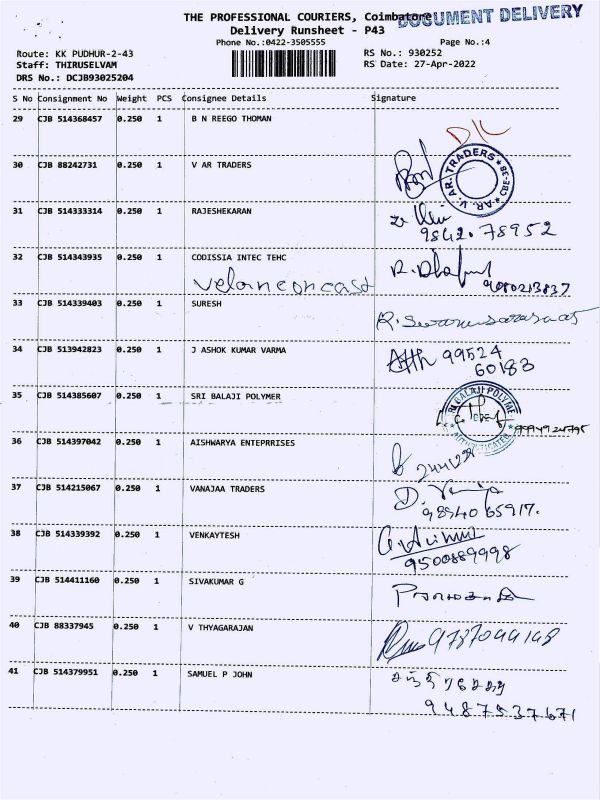 THE PROFESSIONAL COURIERS, Coimbatore
DOCUMENT DELIVERY
Delivery Runsheet - P43
Phone No.:0422-3505555
Page No.:4
Route: KK PUDHUR-2-43
RS No.: 930252
Staff: THIRUSELVAM
RS Date: 27-Apr-2022
DRS No.: DCJB93025204
S No Consignment No Weight PCS Consignee Details Signature
29 CJB 514368457 0.250 1 B N REEGO THOMAN
30 CJB 88242731 0.250 1 V AR TRADERS
AR.V.AR.TRADERS CBE-38
31 CJB 514333314 0.250 1 RAJESHEKARAN
9842.78952
32 CJB 514343935 0.250 1 CODISSIA INTEC TEHC
velanconcast
9080213837
33 CJB 514339403 0.250 1 SURESH
34 CJB 513942823 0.250 1 J ASHOK KUMAR VARMA
99524
60183
35 CJB 514385607 0.250 1 SRI BALAJI POLYMER
SRI BALAJI POLYMER
36 CJB 514397042 0.250 1 AISHWARYA ENTEPRRISES
37 CJB 514215067 0.250 1 VANAJAA TRADERS
9894065917.
38 CJB 514339392 0.250 1 VENKAYTESH
9500889998
39 CJB 514411160 0.250 1 SIVAKUMAR G
40 CJB 88337945 0.250 1 V THYAGARAJAN
9787044148
41 CJB 514379951 0.250 1 SAMUEL P JOHN
9487537671